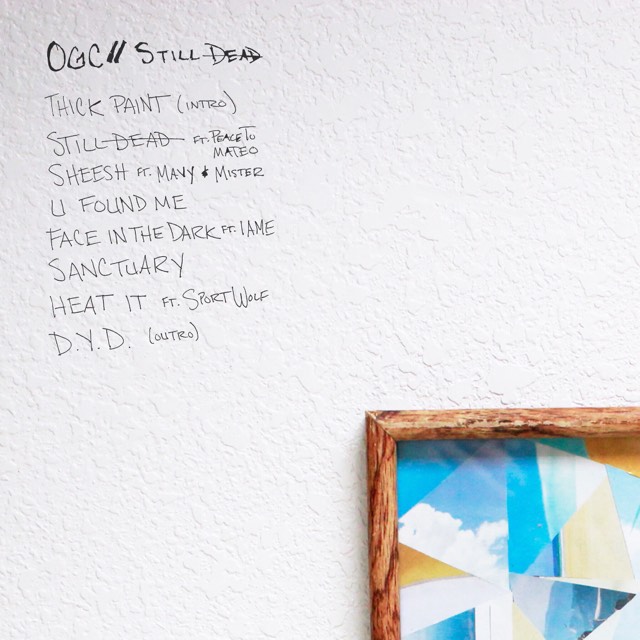 OGC// STILL DEAD
THICK PAINT (INTRO)
STILL DEAD FT. PEACE TO
MATEO
SHEESH FT. MAVY & MISTER
U FOUND ME
FACE IN THE DARK FT. IAME
SANCTUARY
HEAT IT FT. SPORT WOLF
D.Y.D. (OUTRO)